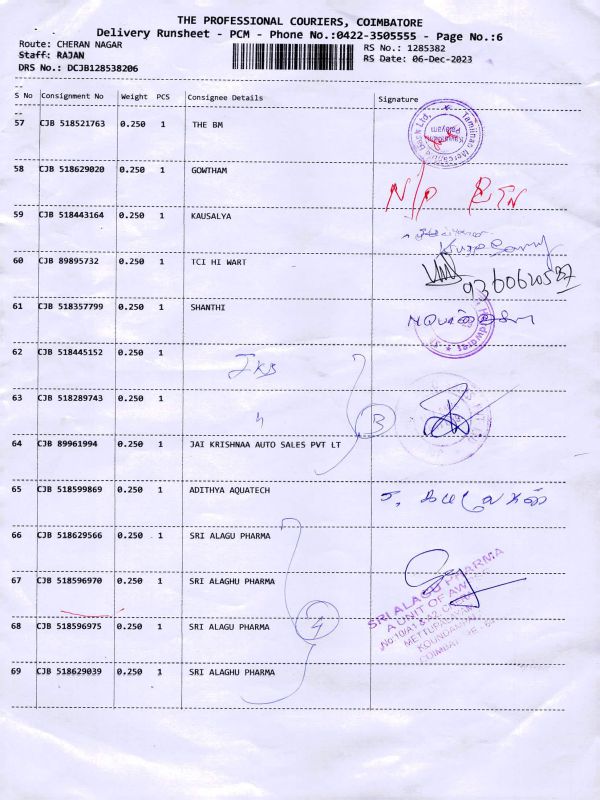 THE PROFESSIONAL COURIERS, COIMBATORE
Delivery Runsheet - PCM - Phone No.:0422-3505555 - Page No.:6
Route: CHERAN NAGAR
RS No.: 1285382
Staff: RAJAN
RS Date: 06-Dec-2023
DRS No.: DCJB128538206
S No Consignment No Weight PCS Consignee Details Signature
57 CJB 518521763 0.250 1 THE BM
58 CJB 518629020 0.250 1 GOWTHAM
N/P RTN
59 CJB 518443164 0.250 1 KAUSALYA
60 CJB 89895732 0.250 1 TCI HI WART
61 CJB 518357799 0.250 1 SHANTHI
62 CJB 518445152 0.250 1
JKB
63 CJB 518289743 0.250 1
"
3
64 CJB 89961994 0.250 1 JAI KRISHNAA AUTO SALES PVT LT
65 CJB 518599869 0.250 1 ADITHYA AQUATECH
66 CJB 518629566 0.250 1 SRI ALAGU PHARMA
67 CJB 518596970 0.250 1 SRI ALAGHU PHARMA
SRI ALAGU PHARMA
A UNIT OF
4
68 CJB 518596975 0.250 1 SRI ALAGU PHARMA
69 CJB 518629039 0.250 1 SRI ALAGHU PHARMA